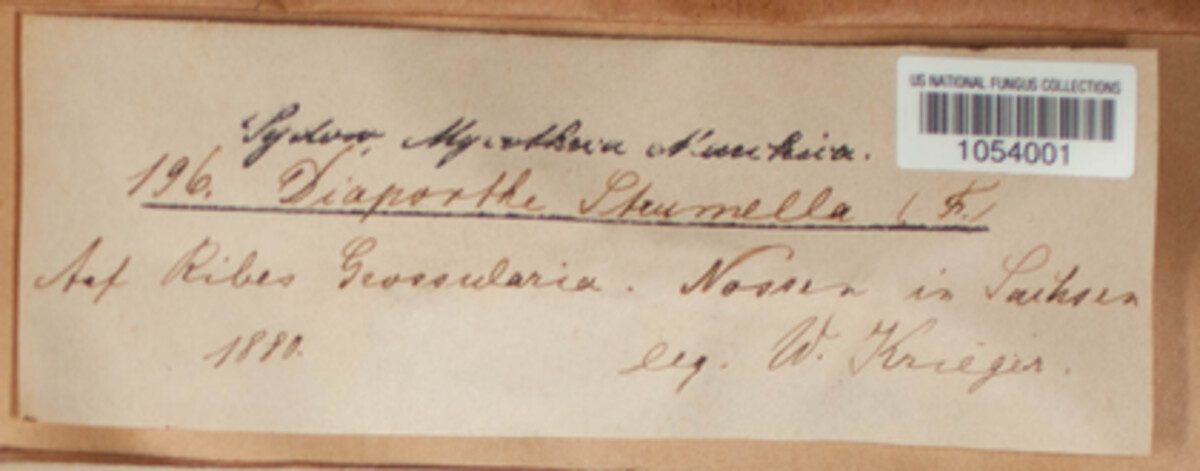 US NATIONAL FUNGUS COLLECTIONS
1054001
Sydow, Mycotheca Marchica.
196. Diaporthe Strumella (F.)
Auf Ribes Grossularia. Nossen in Sachsen
1880. leg. W. Krieger.